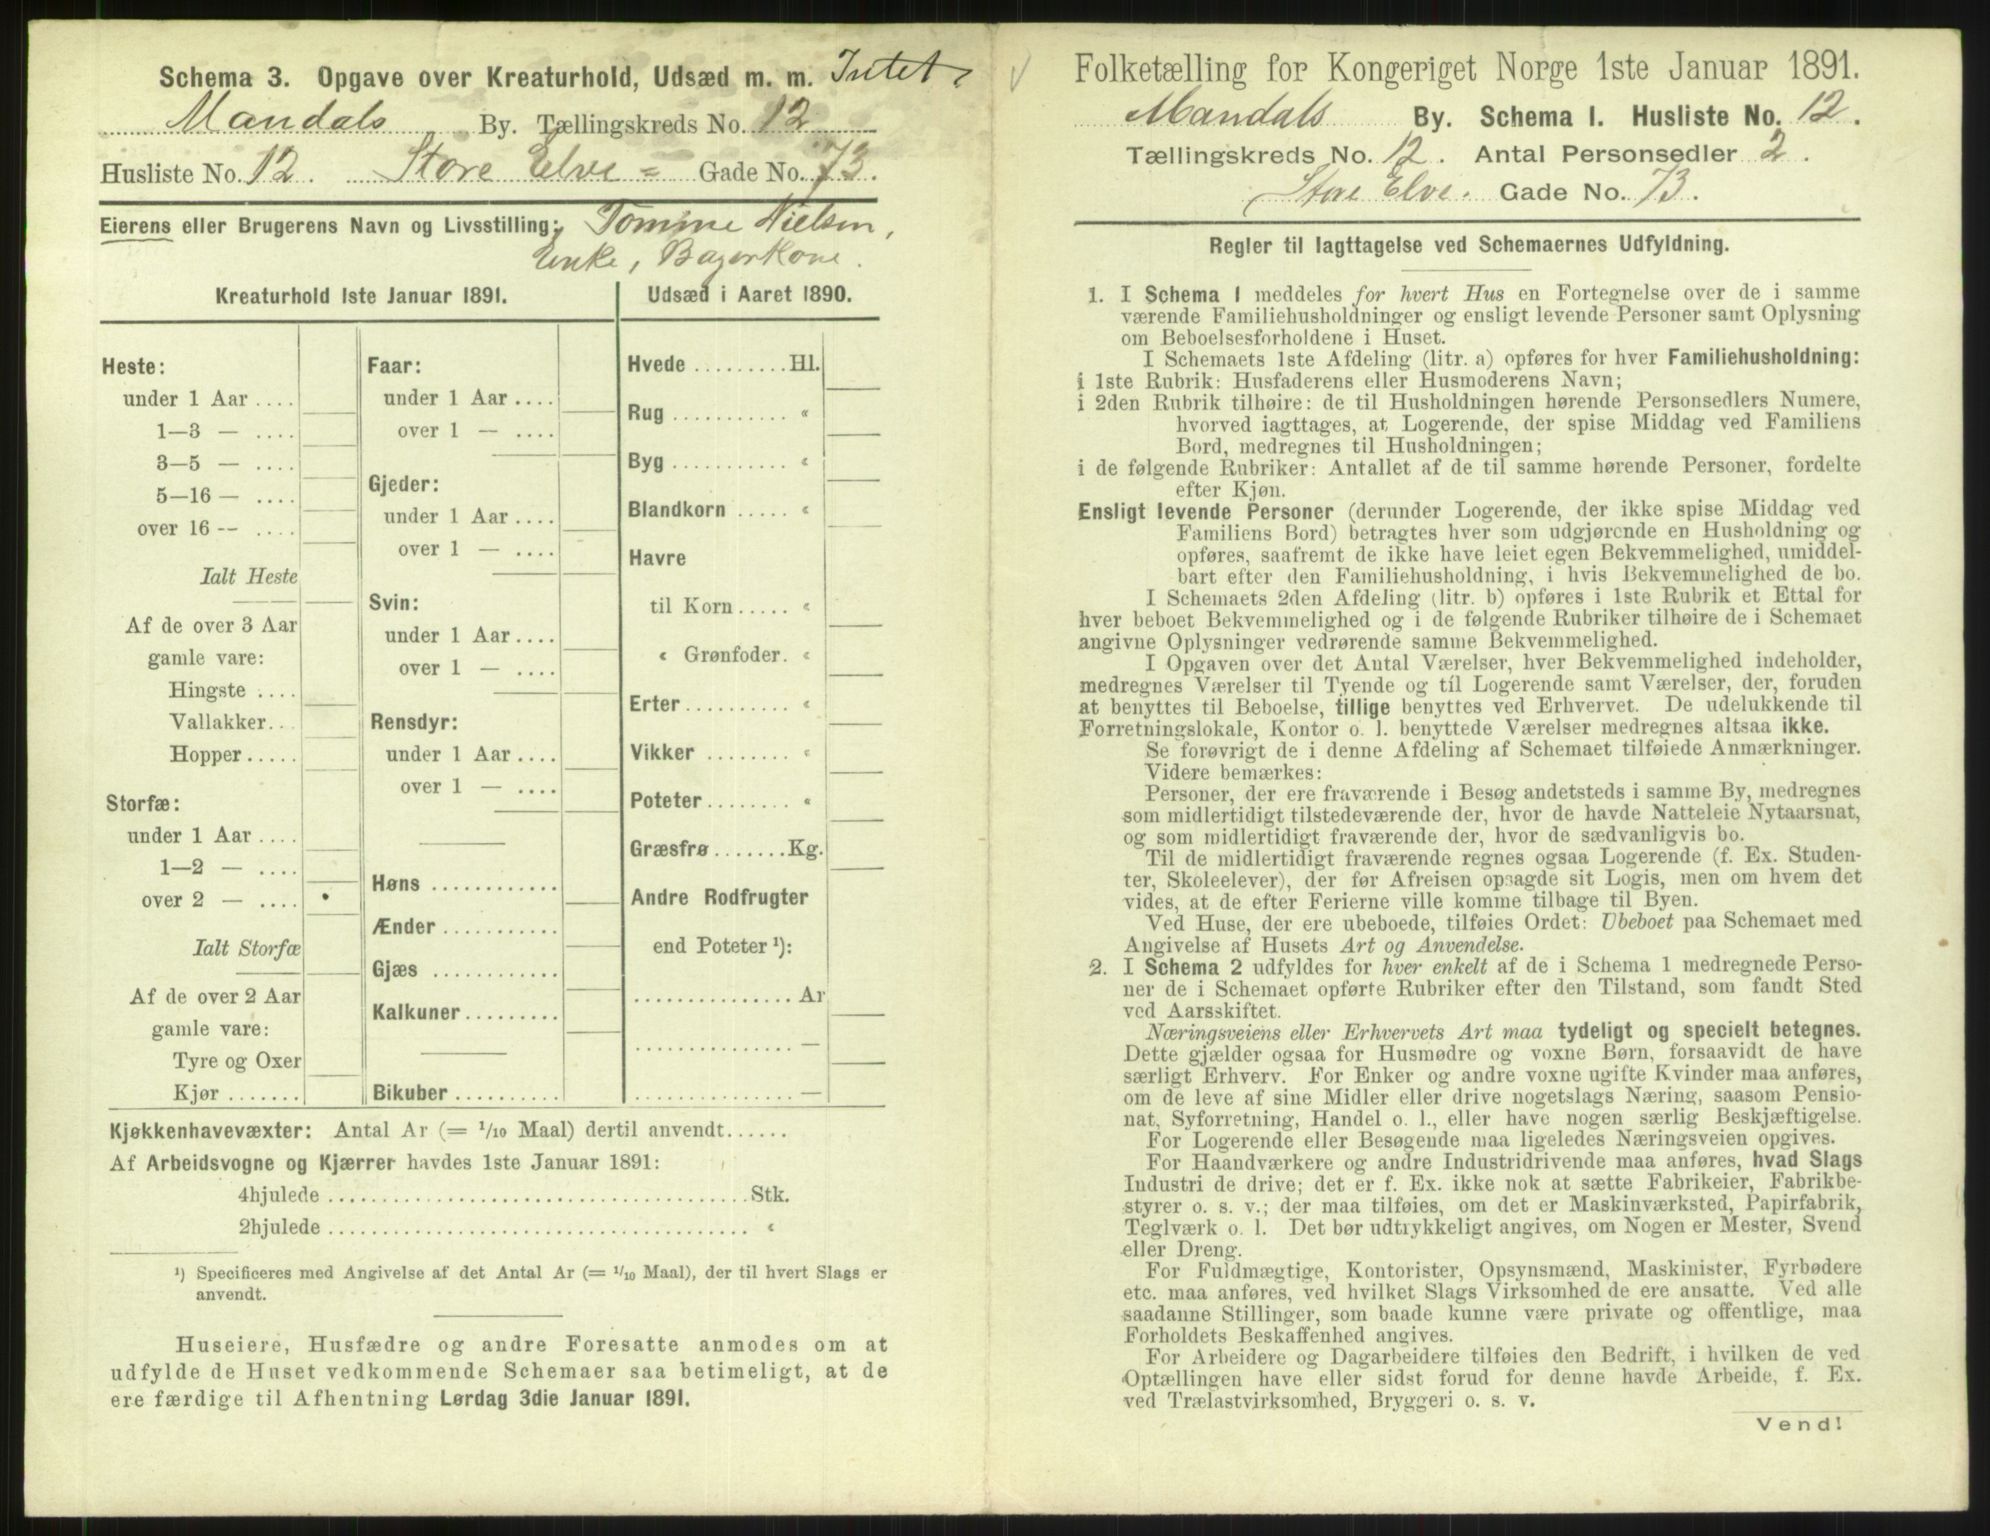 Schema 3. Opgave over Kreaturhold, Udsæd m. m. Intet.
Mandals By. Tællingskreds No. 12
Husliste No. 12. Store Elve = Gade No. 73.
Eierens eller Brugerens Navn og Livsstilling: Tomine Nielsen,
Enke, Bagerkone.
Kreaturhold 1ste Januar 1891.
Heste:
under 1 Aar ....
1—3 — ....
3—5 — ....
5—16 — ....
over 16 -- ....
Ialt Heste
Af de over 3 Aar
gamle vare:
Hingste ....
Vallakker...
Hopper.....
Storfæ:
under 1 Aar ....
1—2 — ....
over 2 — ....
Ialt Storfæ
Af de over 2 Aar
gamle vare:
Tyre og Oxer
Kjør .......
Faar:
under 1 Aar ....
over 1 — ....
Gjeder:
under 1 Aar ....
over 1 — ....
Svin:
under 1 Aar ....
over 1 — ....
Rensdyr:
under 1 Aar ....
over 1 — ....
Høns ............
Ænder ...........
Gjæs ............
Kalkuner.........
Bikuber ..........
Udsæd i Aaret 1890.
Hvede ......... Hl.
Rug ........... «
Byg ........... «
Blandkorn ..... «
Havre
til Korn ..... «
« Grønfoder. «
Erter.......... «
Vikker ........ «
Poteter........ «
Græsfrø ....... Kg.
Andre Rodfrugter
end Poteter ¹):
............... Ar
............... —
............... —
Kjøkkenhavevæxter: Antal Ar (= 1/10 Maal) dertil anvendt......
Af Arbeidsvogne og Kjærrer havdes 1ste Januar 1891:
4hjulede ........................................ Stk.
2hjulede ........................................ «
¹) Specificeres med Angivelse af det Antal Ar (= 1/10 Maal), der til hvert Slags er
anvendt.
Huseiere, Husfædre og andre Foresatte anmodes om at
udfylde de Huset vedkommende Schemaer saa betimeligt, at de
ere færdige til Afhentning Lørdag 3die Januar 1891.
Folketælling for Kongeriget Norge 1ste Januar 1891.
Mandals By. Schema I. Husliste No. 12.
Tællingskreds No. 12. Antal Personsedler 2.
Store Elve. Gade No. 73.
Regler til Iagttagelse ved Schemaernes Udfyldning.
1. I Schema 1 meddeles for hvert Hus en Fortegnelse over de i samme
værende Familiehusholdninger og ensligt levende Personer samt Oplysning
om Beboelsesforholdene i Huset.
I Schemaets 1ste Afdeling (litr. a) opføres for hver Familiehusholdning:
i 1ste Rubrik: Husfaderens eller Husmoderens Navn;
i 2den Rubrik tilhøire: de til Husholdningen hørende Personsedlers Numere,
hvorved iagttages, at Logerende, der spise Middag ved Familiens
Bord, medregnes til Husholdningen;
i de følgende Rubriker: Antallet af de til samme hørende Personer, fordelte
efter Kjøn.
Ensligt levende Personer (derunder Logerende, der ikke spise Middag ved
Familiens Bord) betragtes hver som udgjørende en Husholdning og
opføres, saafremt de ikke have leiet egen Bekvemmelighed, umiddel-
bart efter den Familiehusholdning, i hvis Bekvemmelighed de bo.
I Schemaets 2den Afdeling (litr. b) opføres i 1ste Rubrik et Ettal for
hver beboet Bekvemmelighed og i de følgende Rubriker tilhøire de i Schemaet
angivne Oplysninger vedrørende samme Bekvemmelighed.
I Opgaven over det Antal Værelser, hver Bekvemmelighed indeholder,
medregnes Værelser til Tyende og til Logerende samt Værelser, der, foruden
at benyttes til Beboelse, tillige benyttes ved Erhvervet. De udelukkende til
Forretningslokale, Kontor o. l. benyttede Værelser medregnes altsaa ikke.
Se forøvrigt de i denne Afdeling af Schemaet tilføiede Anmærkninger.
Videre bemærkes:
Personer, der ere fraværende i Besøg andetsteds i samme By, medregnes
som midlertidigt tilstedeværende der, hvor de havde Natteleie Nytaarsnat,
og som midlertidigt fraværende der, hvor de sædvanligvis bo.
Til de midlertidigt fraværende regnes ogsaa Logerende (f. Ex. Studen-
ter, Skoleelever), der før Afreisen opsagde sit Logis, men om hvem det
vides, at de efter Ferierne ville komme tilbage til Byen.
Ved Huse, der ere ubeboede, tilføies Ordet: Ubeboet paa Schemaet med
Angivelse af Husets Art og Anvendelse.
2. I Schema 2 udfyldes for hver enkelt af de i Schema 1 medregnede Perso-
ner de i Schemaet opførte Rubriker efter den Tilstand, som fandt Sted
ved Aarsskiftet.
Næringsveiens eller Erhvervets Art maa tydeligt og specielt betegnes.
Dette gjælder ogsaa for Husmødre og voxne Børn, forsaavidt de have
særligt Erhverv. For Enker og andre voxne ugifte Kvinder maa anføres,
om de leve af sine Midler eller drive nogetslags Næring, saasom Pensio-
nat, Syforretning, Handel o. l., eller have nogen særlig Beskjæftigelse.
For Logerende eller Besøgende maa ligeledes Næringsveien opgives.
For Haandværkere og andre Industridrivende maa anføres, hvad Slags
Industri de drive; det er f. Ex. ikke nok at sætte Fabrikeier, Fabrikbe-
styrer o. s. v.; der maa tilføies, om det er Maskinværksted, Papirfabrik,
Teglværk o. l. Det bør udtrykkeligt angives, om Nogen er Mester, Svend
eller Dreng.
For Fuldmægtige, Kontorister, Opsynsmænd, Maskinister, Fyrbødere
etc. maa anføres, ved hvilket Slags Virksomhed de ere ansatte. Ved alle
saadanne Stillinger, som baade kunne være private og offentlige, maa
Forholdets Beskaffenhed angives.
For Arbeidere og Dagarbeidere tilføies den Bedrift, i hvilken de ved
Optællingen have eller sidst forud for denne havde Arbeide, f. Ex.
ved Trælastvirksomhed, Bryggeri o. s. v.
Vend!